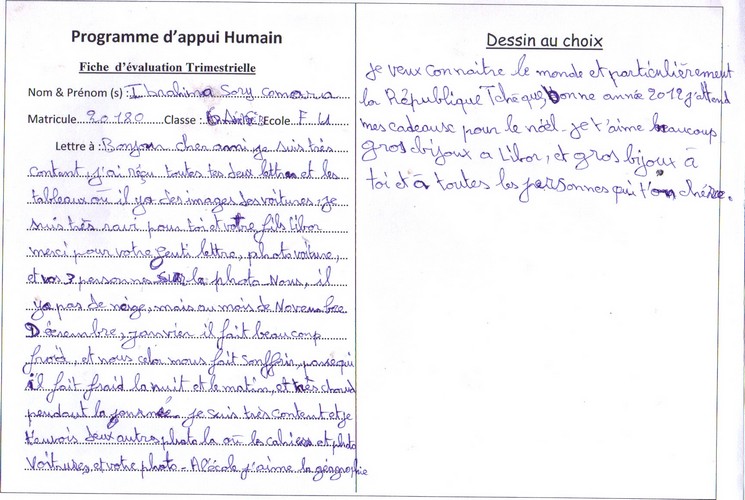 Programme d'appui Humain
Fiche d'évaluation Trimestrielle
Nom & Prénom (s) : Ibrahima Sory Camara
Matricule 90180 Classe : Ecole F U
Lettre à : Bonjour cher ami je suis très
content, j'ai réçu toutes tes deux lettres et les
tableaux où il ya des images des voitures, je
suis très ravi pour toi et votre fils Libor
merci pour votre genti lettre, photo voiture,
et vos 3 personnes sur la photo. Nous, il
ya pas de neige, mais au mois de Novembre
Décembre, janvier il fait beaucoup
froid, et nous cela nous fait souffrir, parsequi
il fait fraid la nuit et le matin, et très chaud
pendant la journée. je suis très content et je
t'envois deux autres photo la où la cahiers et photo
Voitures, et votre photo - A l'école j'aime la géographie
Dessin au choix
je veux connaitre le monde et particulièrement
la République Tchèque, bonne année 2012 j'attend
mes cadeause pour le noël. je t'aime beaucoup
gros bijoux a Libor, et gros bijoux à
toi et à toutes les personnes qui t'on chère.